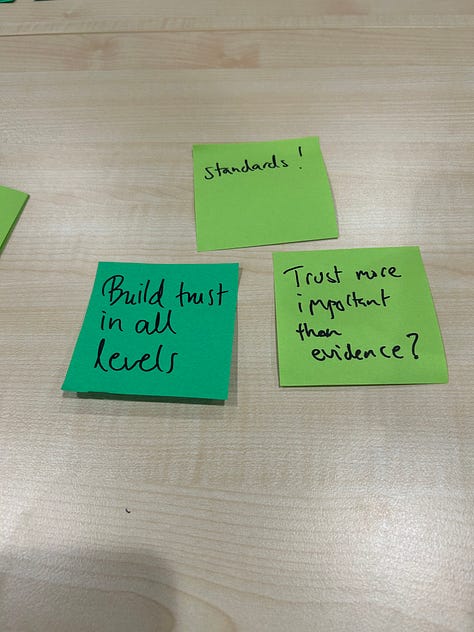 standards!
Build trust
in all
levels
Trust more
important
than
evidence?